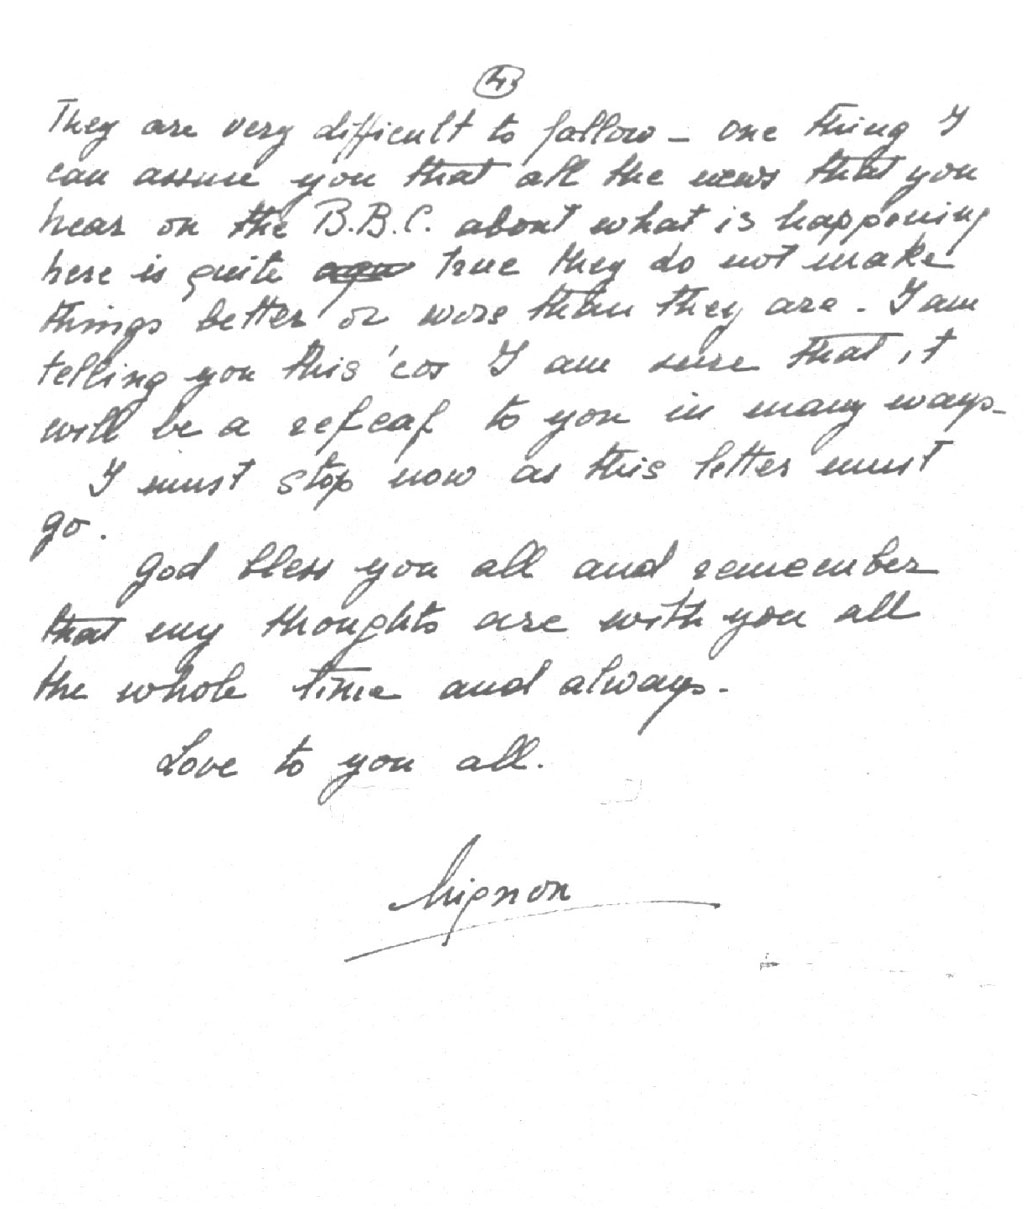 4
They are very difficult to follow – one thing I
can assure you that all the news that you
hear on the B.B.C. about what is happening
here is quite true they do not make
things better or wors than they are. I am
telling you this 'cos I am sure that it
will be a refeaf to you in many ways–
I must stop now as this letter must
go.
God bless you all and remember
that my thoughts are with you all
the whole time and always.
Love to you all.
Mignon